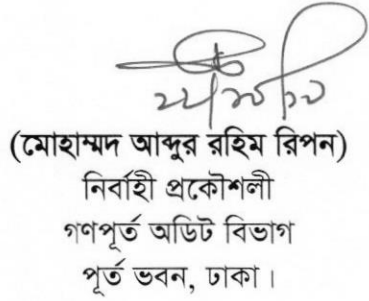 (মোহাম্মদ আব্দুর রহিম রিপন)
নির্বাহী প্রকৌশলী
গণপূর্ত অডিট বিভাগ
পূর্ত ভবন, ঢাকা।